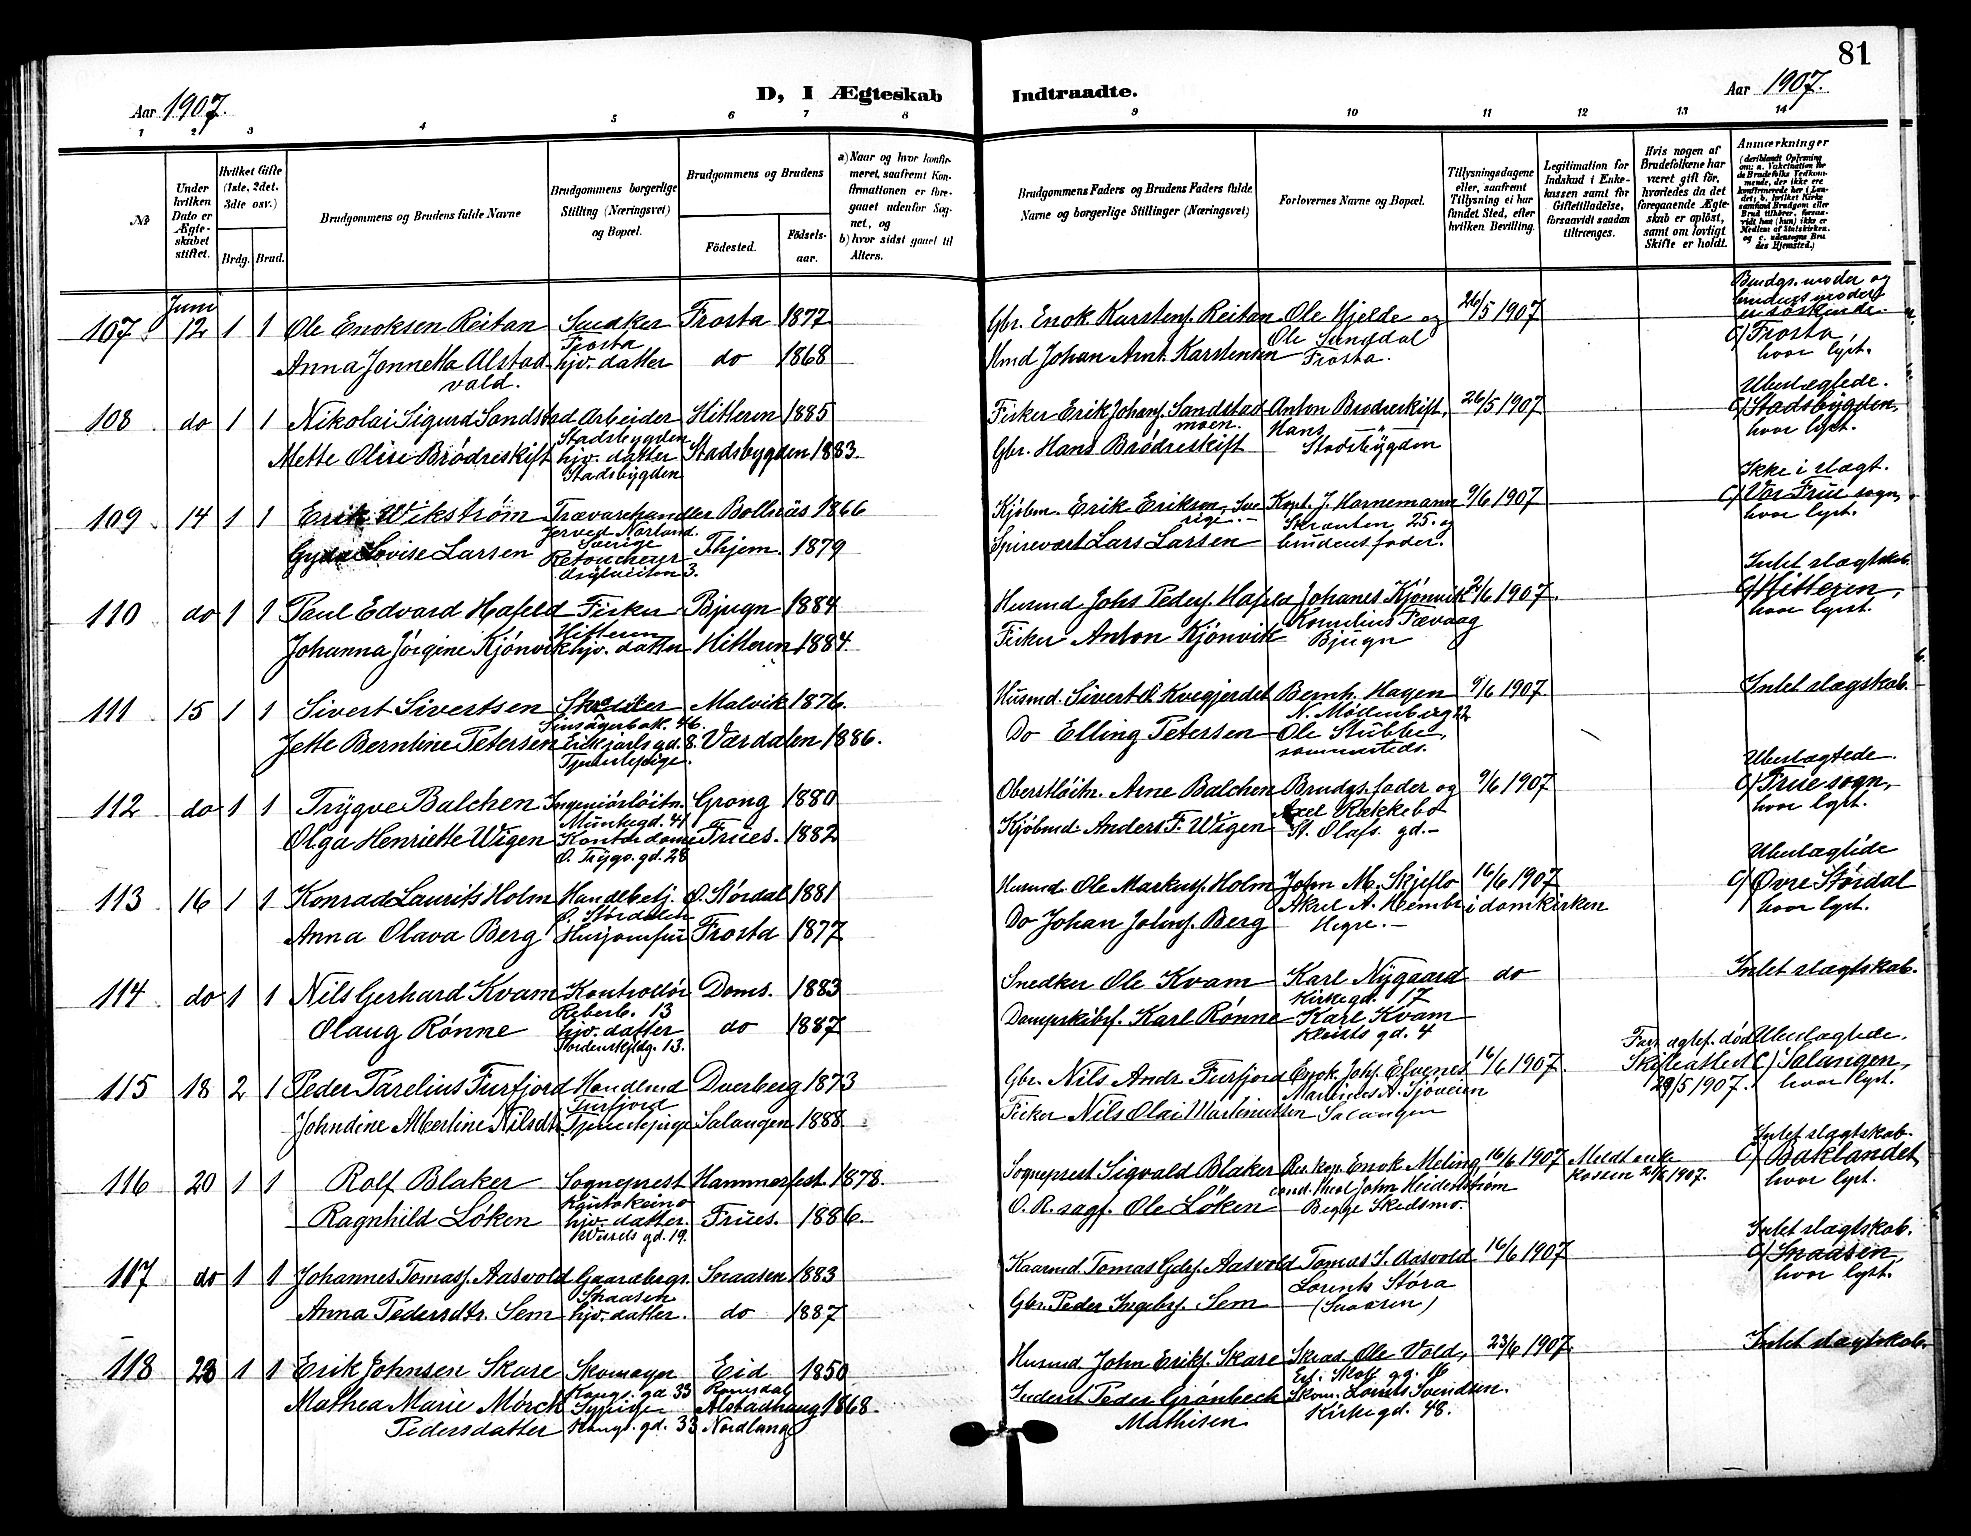 81
Aar 1907.
D, I Ægteskab Indtraadte.
Aar 1907.
1 2 3 4 5 6 7 8 9 10 11 12 13 14
№
Under hvilken Dato er Ægteskabet stiftet.
Hvilket Gifte (1ste, 2det, 3dte osv.)
Brdg. Brud.
Brudgommens og Brudens fulde Navne
Brudgommens borgerlige Stilling (Næringsvei) og Bopæl.
Brudgommens og Brudens
Födested.
Födselsaar.
a) Naar og hvor konfirmeret, saafremt Konfirmationen er foregaaet udenfor Sognet, og
b) hvor sidst gaaet til Alters.
Brudgommens Faders og Brudens Faders fulde Navne og borgerlige Stillinger (Næringsvei)
Forlovernes Navne og Bopæl.
Tillysningsdagene eller, saafremt Tillysning ei har fundet Sted, efter hvilken Bevilling.
Legitimation for Indskud i Enkekassen samt for Giftetilladelse, forsaavidt saadan tiltrænges.
Hvis nogen af Brudefolkene har været gift för, hvorledes da det foregaaende Ægteskab er oplöst, samt om lovligt Skifte er holdt.
Anmærkninger
107. Juni 12 1 1 Ole Enoksen Reitan Snedker Frosta 1877 Gbr. Enok Karstens. Reitan Ole Hjelde og 26/5 1907 Brudgs. moder og brudens moder er söskende.
Frosta Ole Sanddal C/ Frosta,
Anna Jonnetta Alstad hjv. datter do 1868 Hmd Johan Arnt Karstensen Frosta. hvor lyst.
vald.
108 do 1 1 Nikolai Sigurd Sandstad Arbeider Hitteren 1885 Fisker Erik Johans. Sandstad Anton Brødreskift, 26/5 1907 Ubeslægtede.
Stadsbygden moen. Hans —"— C/ Stadsbygden,
Mette Oline Brødreskift hjv. datter Stadsbygden 1883. Gbr. Hans Brødreskift Stadsbygden hvor lyst.
Stadsbygden
109. 14 1 1 Erik Wikstrøm Trævarehandler Bollnäs 1866 Kjöbm. Erik Erikson, Sve Kapt. J. Harnemann 9/6 1907 Ikke i slægt.
Jerved Norland. rige. Skranten 25. og C/ Vor Frue sogn,
Sverige hvor lyst.
Gyda Lovise Larsen Retoucheur Thjem. 1879 Spisevært Lars Larsen brudens fader.
110 do 1 1 Paul Edvard Hafeld Fisker Bjugn 1884 Husmd Johs Peders. Hafeld Johanes Kjönvik 2/6 1907. Intet slægtskab.
Hitteren Kornelius Fævaag C/ Hitteren,
Johanna Jörgine Kjönvik hjv. datter Hitteren 1884. Fisker Anton Kjönvik Bjugn hvor lyst.
111. 15 1 1 Sivert Sivertsen Malvik 1876. Husmd. Sivert O. Kvegjerdet Bernh. Hagen 9/6 1907. Intet slægskab.
N. Möllenberg 22
Jette Berntine Petersen Erik jarls gd. 8. Værdalen 1886. Do Elling Petersen Ole Stubbe,
Tjenestepige. sammesteds.
112 do 1 1 Trygve Balchen Ingeniörlöitn. Grong 1880 Oberstlöitn. Arne Balchen Brudgs. fader og 9/6 1907 Ubeslægtede.
Munkegd. 41 Axel Rækkebo C/ Frue sogn,
Olga Henriette Wigen Kontordame Frues. 1882 Kjöbmd. Anders F. Wigen St. Olafs gd.- hvor lyst.
O. Trygs. gd. 28
113 16 1 1 Konrad Laurits Holm Handelsbetj. Ö. Størdal 1881 Husmd Ole Markuss. Holm John M. Skjeflo 16/6 1907 Ubeslægtede
Ö. Størdalen Akrel A. Hembr i domkirken C/ Øvre Størdal
Anna Olava Berg Husjomfru Frosta 1877 Do Johan Johns. Berg Hegre.- hvor lyst.
114 do 1 1 Nils Gerhard Kvam Kontrollör Doms. 1883 Snedker Ole Kvam Karl Nygaard do Intet slægtskab.
Reberb. 13 Kirkegd. 17
Olaug Rønne hjv. datter do 1887 Dampskibsf. Karl Rønne Karl Kvam
Tordenskjldg. 13. Kleists gd. 4
115 18 2 1 Peder Parelius Furfjord Handlmd Dverberg 1873 Gbr. Nils Andr. Furfjord Enok Johs. Elvenes 16/6 1907. Forr. ægtef. död Ubeslægtede,
Furfjord Martinus A. Sjöveien Skifteattest C/ Salangen,
Johndine Albertine Nilsdtr. Tjenestepige Salangen 1888. Fisker Nils Olai Martinussen Salangen 29/5 1907. hvor lyst.
116 20 1 1 Rolf Blaker Sogneprest Hammerfest 1878. Sogneprest Sigvald Blaker Res. kap. Enok Meling, 16/6 1907 Meldt enke Intet slægtskab.
Kautokeino cand. theol John Heidenström kassen 20/6 1907. C/ Baklandet,
Ragnhild Löken hjv. datter. Frues. 1886. O. R. sagf. Ole Löken Begge Skedsmo. hvor lyst.
Wessels gd. 19.
117 do 1 1 Johannes Tomass. Aasvold Gaardbrgs. Snaasen 1883 Kaarmd Tomas Aasvold Tomas J. Aasvold 16/6 1907 Intet slægtskab.
Snaasen Lorents Störa C/ Snaasen,
Anna Pedersdtr. Sem hjv. datter. do 1887 Gbr. Peder Ingebrs. Sem (Snaasen) hvor lyst.
118 23 1 1 Erik Johnsen Skare Skomager Eid 1850 Husmd John Eriks. Skare Skræd. Ole Vold, 23/6 1907. Intet slægtskab.
Kongs. gd 33 Romsdal gd. 16
Mathea Marie Mörck Sypige Alstadhaug 1868. Inderst Peder Grönbech Skom. Lorents Svendsen.
Pedersdatter Kongs. gd. 33 Nordland Mathisen Kirkegd. 48.